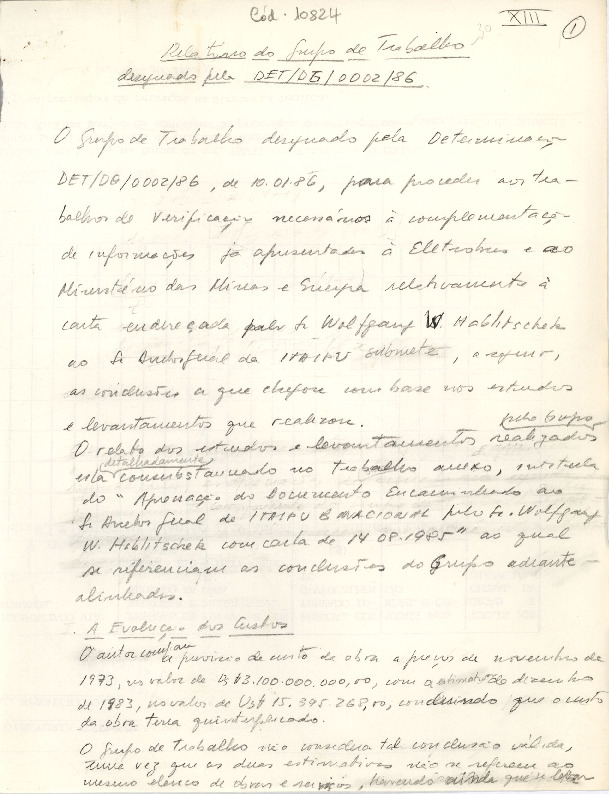 Cód. 10824
30
XIII
1
Relatorio do Grupo de Trabalho
designado pela DET/DG/0002/86.
O Grupo de Trabalho designado pela Determinação
DET/DG/0002/86, de 10.01.86, para proceder aos tra-
balhos de verificação necessários à complementação
de informações já apresentadas à Eletrobras e ao
Ministério das Minas e Energia relativamente à
carta endereçada pelo Sr Wolfgang W. Hablitschek
ao Sr Auditor Geral da ITAIPU submete, a seguir,
as conclusões a que chegou com base nos estudos
e levantamentos que realizou.
pelo Grupo
O relato dos estudos e levantamentos realizados
detalhadamente
está consubstanciado no trabalho anexo, intitula
do "Apreciação do Documento Encaminhado ao
Sr Auditor Geral de ITAIPU BINACIONAL pelo Sr. Wolfgang
W. Hablitschek com carta de 14.08.1985" ao qual
se referenciam as conclusões do Grupo adiante
alinhadas.
I. A Evolução dos Custos
O autor compara a previsão de custo da obra a preços de novembro de
1973, no valor de US$ 3.100.000.000,00, com a estimativa de dezembro
de 1983, no valor de US$ 15.395.268,00, concluindo que o custo
da obra teria quintuplicado.
O Grupo de Trabalho não considera tal conclusão válida,
uma vez que as duas estimativas não se referem ao
mesmo elenco de obras e serviços, havendo ainda que se